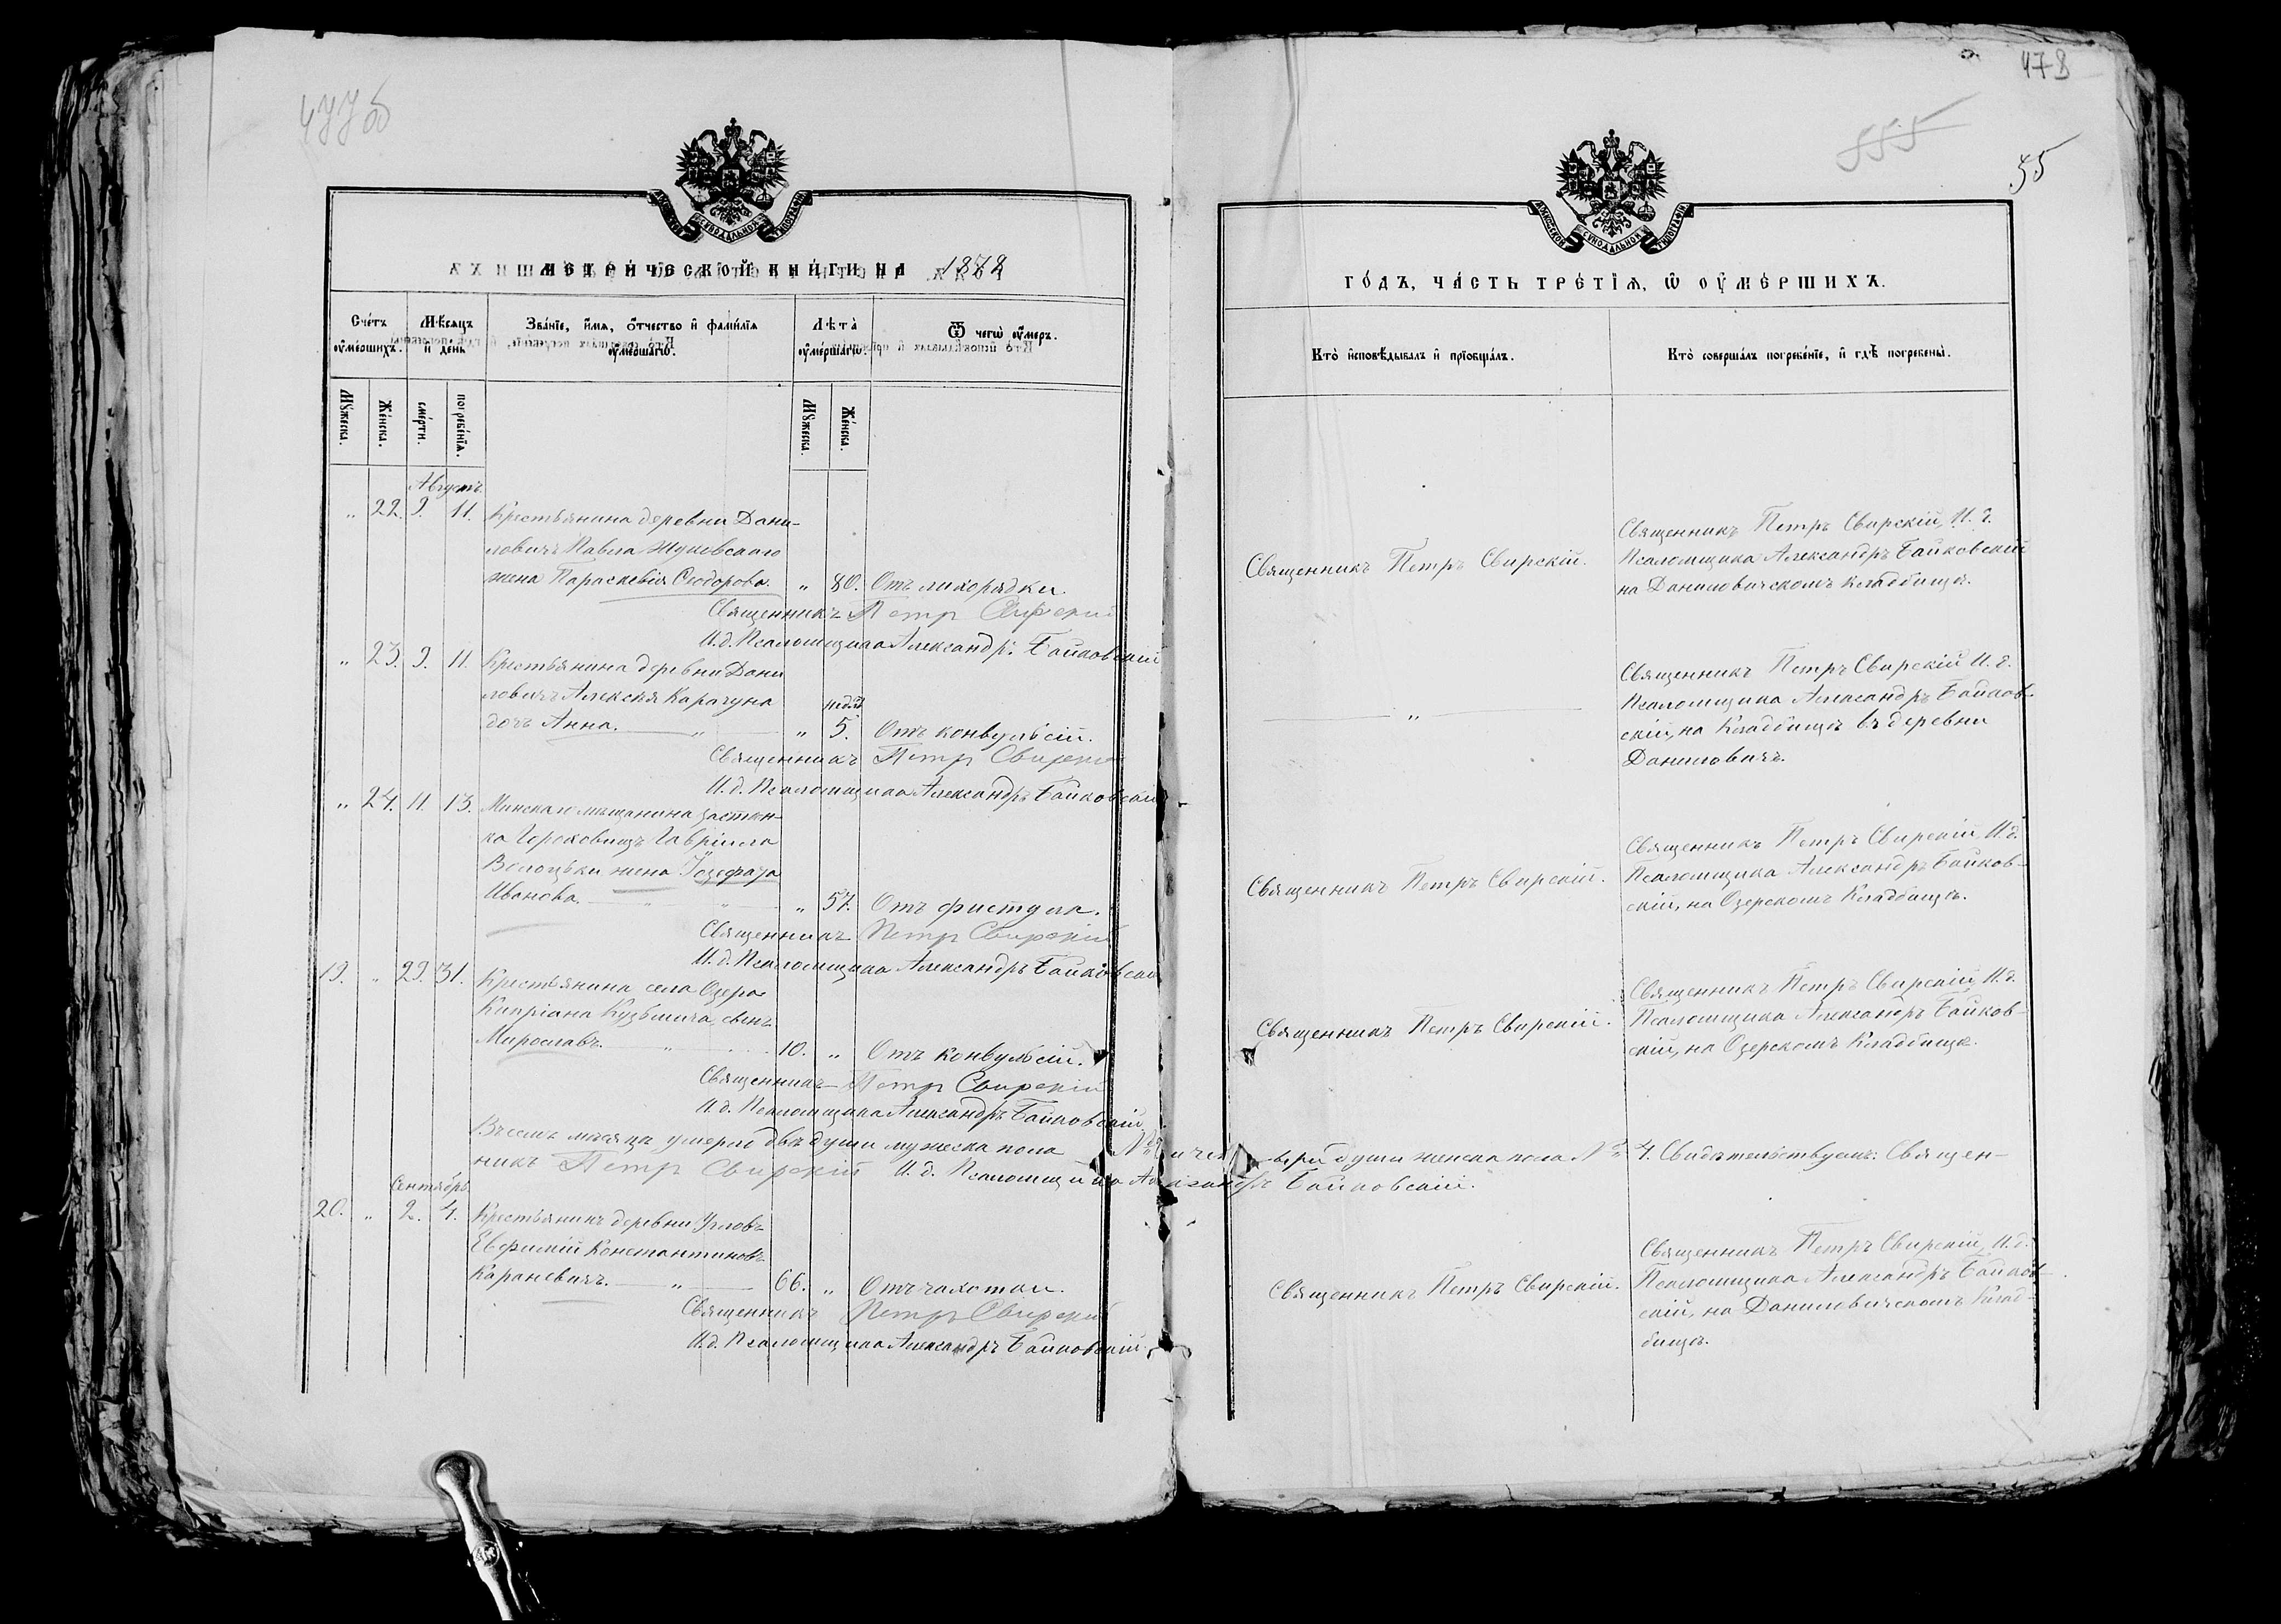 477об
МИНСКОЙ СѴНОДАЛЬНОЙ ТИПОГРАФІИ
МЕТРИ́ЧЕСКОЙ КНИ́ГИ НА 1878
Сче́тъ оу҆ме́ршихъ.
Мѣ́сяцъ и҆ день
Зва́нїе, и҆́мя, ѻ҆́тчество и҆ фами́лїя оу҆ме́ршагѡ.
Лѣ́та оу҆ме́ршагѡ.
Ѿ чегѡ̀ оу҆́меръ.
Мꙋ́жеска.
Же́нска.
сме́рти.
погребе́нїя.
Мꙋ́жеска.
Же́нска.
Августъ
„ 22. 9. 11. Крестьянина деревни Дани-
ловичъ Павла Жуковскаго
жена Параскевія Сидорова. „ 80. Отъ лихорадки.
Священникъ Петр Свирскій
И. д. Псаломщика Александръ Байковскій
„ 23. 9. 11. Крестьянина деревни Дани
ловичъ Алексѣя Карачуна
дочь Анна. „ „ недѣл 5. Отъ конвульсій.
Священникъ Петр Свирскій
И. д. Псаломщика Александръ Байковскій
„ 24. 11. 13. Минскаго мѣщанина застѣн-
ка Гавріила
жена Іозефата
Иванова. „ „ „ 57. Отъ фистулы.
Священникъ Петр Свирскій
И. д. Псаломщика Александръ Байковскій
19. „ 29. 31. Крестьянина села Озера
Кипріана Кузьмича сынъ
Мирославъ. „ 10. „ Отъ конвульсій.
Священникъ Петр Свирскій
И. д. Псаломщика Александръ Байковскій
Въ семъ мѣсяцѣ умерло двѣ души мужеска пола
никъ Петр Свирскій И. д. Псаломщика Александръ Байковскій.
Сентябрь
20. „ 2. 4. Крестьянинъ деревни Угловъ
Евфимій Константиновъ
Караневичъ. „ 66. „ Отъ чахотки.
Священникъ Петръ Свирскій
И. д. Псаломщика Александръ Байковскій.
478
555
55
МИНСКОЙ СѴНОДАЛЬНОЙ ТИПОГРАФІИ
ГО́ДЪ, ЧА́СТЬ ТРЕ́ТЇЯ, Ѡ҆ ОУ҆МЕ́РШИХЪ.
Кто̀ и҆сповѣ́дывалъ и҆ прїобща́лъ.
Кто̀ соверша́лъ погребе́нїе, и҆ гдѣ̀ погребены̀.
Священникъ Петръ Свирскій.
Священникъ Петръ Свирскій, И. д.
Псаломщика Александръ Байковскій
на Даниловичскомъ кладбищѣ.
„
Священникъ Петръ Свирскій И. д.
Псаломщика Александръ Байков-
скій, на кладбищѣ въ деревни
Даниловичъ.
Священникъ Петръ Свирскій.
Священникъ Петръ Свирскій, И. д.
Псаломщика Александръ Байков-
скій, на Озерскомъ Кладбищѣ.
Священникъ Петръ Свирскій.
Священникъ Петръ Свирскій, И. д.
Псаломщика Александръ Байков-
скій, на Озерскомъ Кладбищѣ.
души женска пола № 4. Свидѣтельствуемъ: Священ-
Священникъ Петръ Свирскій.
Священникъ Петръ Свирскій, И. д.
Псаломщика Александръ Байков-
скій, на Даниловичскомъ Клад-
бищѣ.